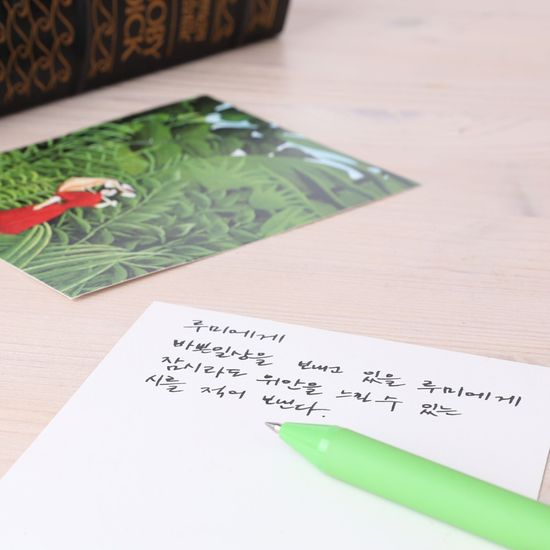 OBY
ICK
루미에게
바쁜일상을 보내고 있을 루미에게
잠시라도 위안을 느낄 수 있는
시를 적어 보낸다.